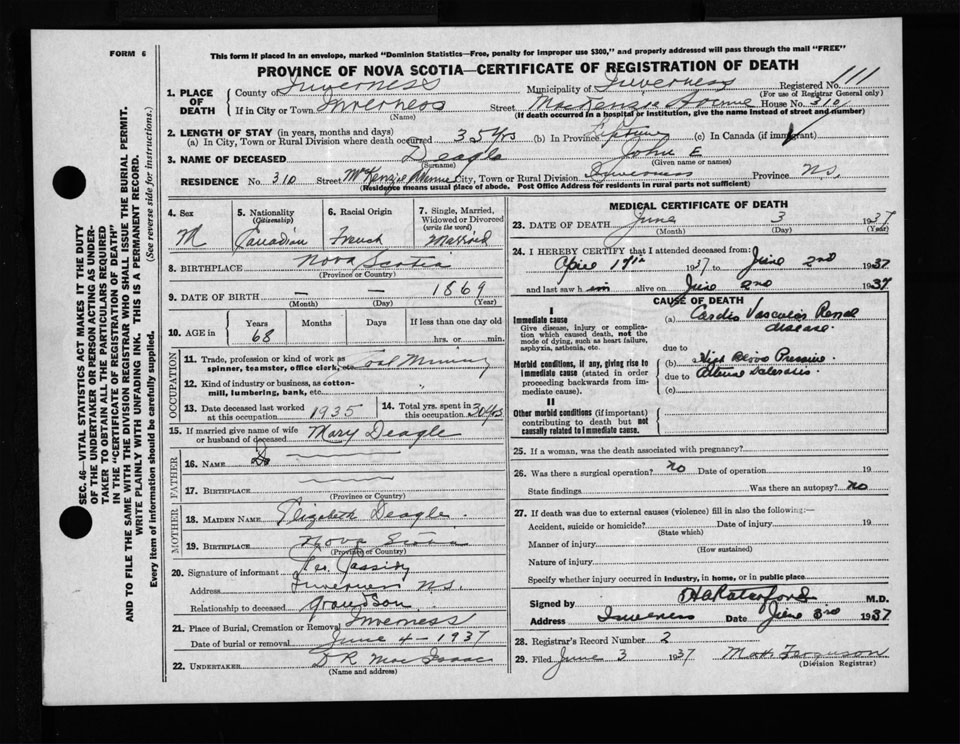 FORM 6
This form if placed in an envelope, marked "Dominion Statistics—Free, penalty for improper use $300," and properly addressed will pass through the mail "FREE"
PROVINCE OF NOVA SCOTIA—CERTIFICATE OF REGISTRATION OF DEATH
111
1. PLACE OF DEATH
County of Inverness Municipality of Inverness Registered No.
(For use of Registrar General only)
If in City or Town Inverness Street MacKenzie Avenue House No. 310
(Name) (If death occurred in a hospital or institution, give the name instead of street and number)
2. LENGTH OF STAY (in years, months and days)
(a) In City, Town or Rural Division where death occurred 35 yrs (b) In Province Lifetime (c) In Canada (if immigrant)
3. NAME OF DECEASED Deagle John E
(Surname) (Given name or names)
RESIDENCE No. 310 Street McKenzie Avenue City, Town or Rural Division Inverness Province NS,
(Residence means usual place of abode. Post Office Address for residents in rural parts not sufficient)
4. Sex
M
5. Nationality
(Citizenship)
Canadian
6. Racial Origin
French
7. Single, Married, Widowed or Divorced
(write the word)
Married
8. BIRTHPLACE Nova Scotia
(Province or Country)
9. DATE OF BIRTH — — 1869
(Month) (Day) (Year)
10. AGE in
Years Months Days If less than one day old
68 hrs. or min.
OCCUPATION
11. Trade, profession or kind of work as spinner, teamster, office clerk, etc. Coal Mining
12. Kind of industry or business, as cotton-mill, lumbering, bank, etc. "
13. Date deceased last worked at this occupation 1935
14. Total yrs. spent in this occupation 30 yrs
15. If married give name of wife or husband of deceased Mary Deagle
FATHER
16. NAME
17. BIRTHPLACE
(Province or Country)
MOTHER
18. MAIDEN NAME Elizabeth Deagle.
19. BIRTHPLACE Nova Scotia
(Province or Country)
20. Signature of informant Cassidy
Address Inverness NS.
Relationship to deceased Grandson
21. Place of Burial, Cremation or Removal Inverness
Date of burial or removal June 4 - 1937
22. UNDERTAKER D R MacIsaac
(Name and address)
MEDICAL CERTIFICATE OF DEATH
23. DATE OF DEATH June 3 1937
(Month) (Day) (Year)
24. I HEREBY CERTIFY that I attended deceased from:
April 19th 1937 to June 2nd 1937
and last saw him alive on June 2nd 1937
CAUSE OF DEATH
I
Immediate cause
Give disease, injury or complication which caused death, not the mode of dying, such as heart failure, asphyxia, asthenia, etc.
(a) Cardio Vascular Renal disease.
due to
Morbid conditions, if any, giving rise to immediate cause (stated in order proceeding backwards from immediate cause).
(b) High Blood Pressure
due to
(c)
II
Other morbid conditions (if important) contributing to death but not causally related to immediate cause.
25. If a woman, was the death associated with pregnancy?
26. Was there a surgical operation? no Date of operation 19
State findings Was there an autopsy? no
27. If death was due to external causes (violence) fill in also the following:—
Accident, suicide or homicide? Date of injury 19
(State which)
Manner of injury
(How sustained)
Nature of injury
Specify whether injury occurred in industry, in home, or in public place
Signed by M.D.
Address Inverness Date June 3rd 1937
28. Registrar's Record Number 2
29. Filed June 3 1937 Ferguson
(Division Registrar)
SEC. 46—VITAL STATISTICS ACT MAKES IT THE DUTY
OF THE UNDERTAKER OR PERSON ACTING AS UNDER-
TAKER TO OBTAIN ALL THE PARTICULARS REQUIRED
IN THE "CERTIFICATE OF REGISTRATION OF DEATH"
AND TO FILE THE SAME WITH THE DIVISION REGISTRAR WHO SHALL ISSUE THE BURIAL PERMIT.
WRITE PLAINLY WITH UNFADING INK. THIS IS A PERMANENT RECORD.
Every item of information should be carefully supplied. (See reverse side for instructions.)